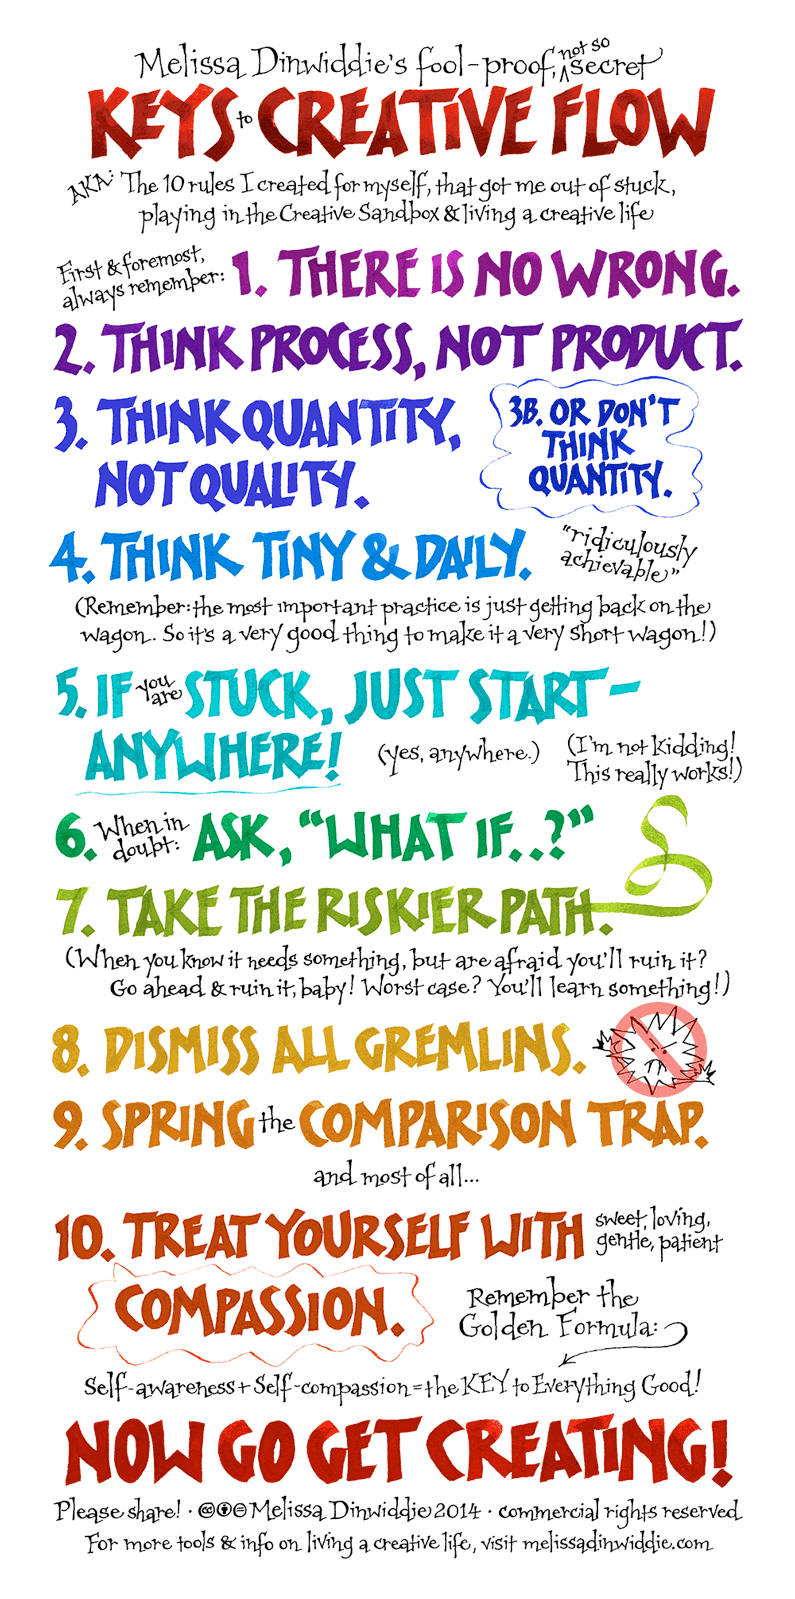 Melissa Dinwiddie's fool-proof, not so secret
KEYS to CREATIVE FLOW
AKA: The 10 rules I created for myself, that got me out of stuck,
playing in the Creative Sandbox & living a creative life
First & foremost,
always remember:
1. THERE IS NO WRONG.
2. THINK PROCESS, NOT PRODUCT.
3. THINK QUANTITY,
NOT QUALITY.
3B. OR DON'T
THINK
QUANTITY.
4. THINK TINY & DAILY.
"ridiculously
achievable"
(Remember: the most important practice is just getting back on the
wagon. So it's a very good thing to make it a very short wagon!)
5. IF you are STUCK, JUST START-
ANYWHERE!
(yes, anywhere.)
(I'm not kidding!
This really works!)
6. When in doubt: ASK, "WHAT IF..?"
7. TAKE THE RISKIER PATH.
(When you know it needs something, but are afraid you'll ruin it?
Go ahead & ruin it, baby! Worst case? You'll learn something!)
8. DISMISS ALL GREMLINS.
9. SPRING the COMPARISON TRAP.
and most of all...
10. TREAT YOURSELF WITH
sweet, loving,
gentle, patient
COMPASSION.
Remember the
Golden Formula:
Self-awareness + Self-compassion = the KEY to Everything Good!
NOW GO GET CREATING!
Please share! · Melissa Dinwiddie 2014 · commercial rights reserved
For more tools & info on living a creative life, visit melissadinwiddie.com